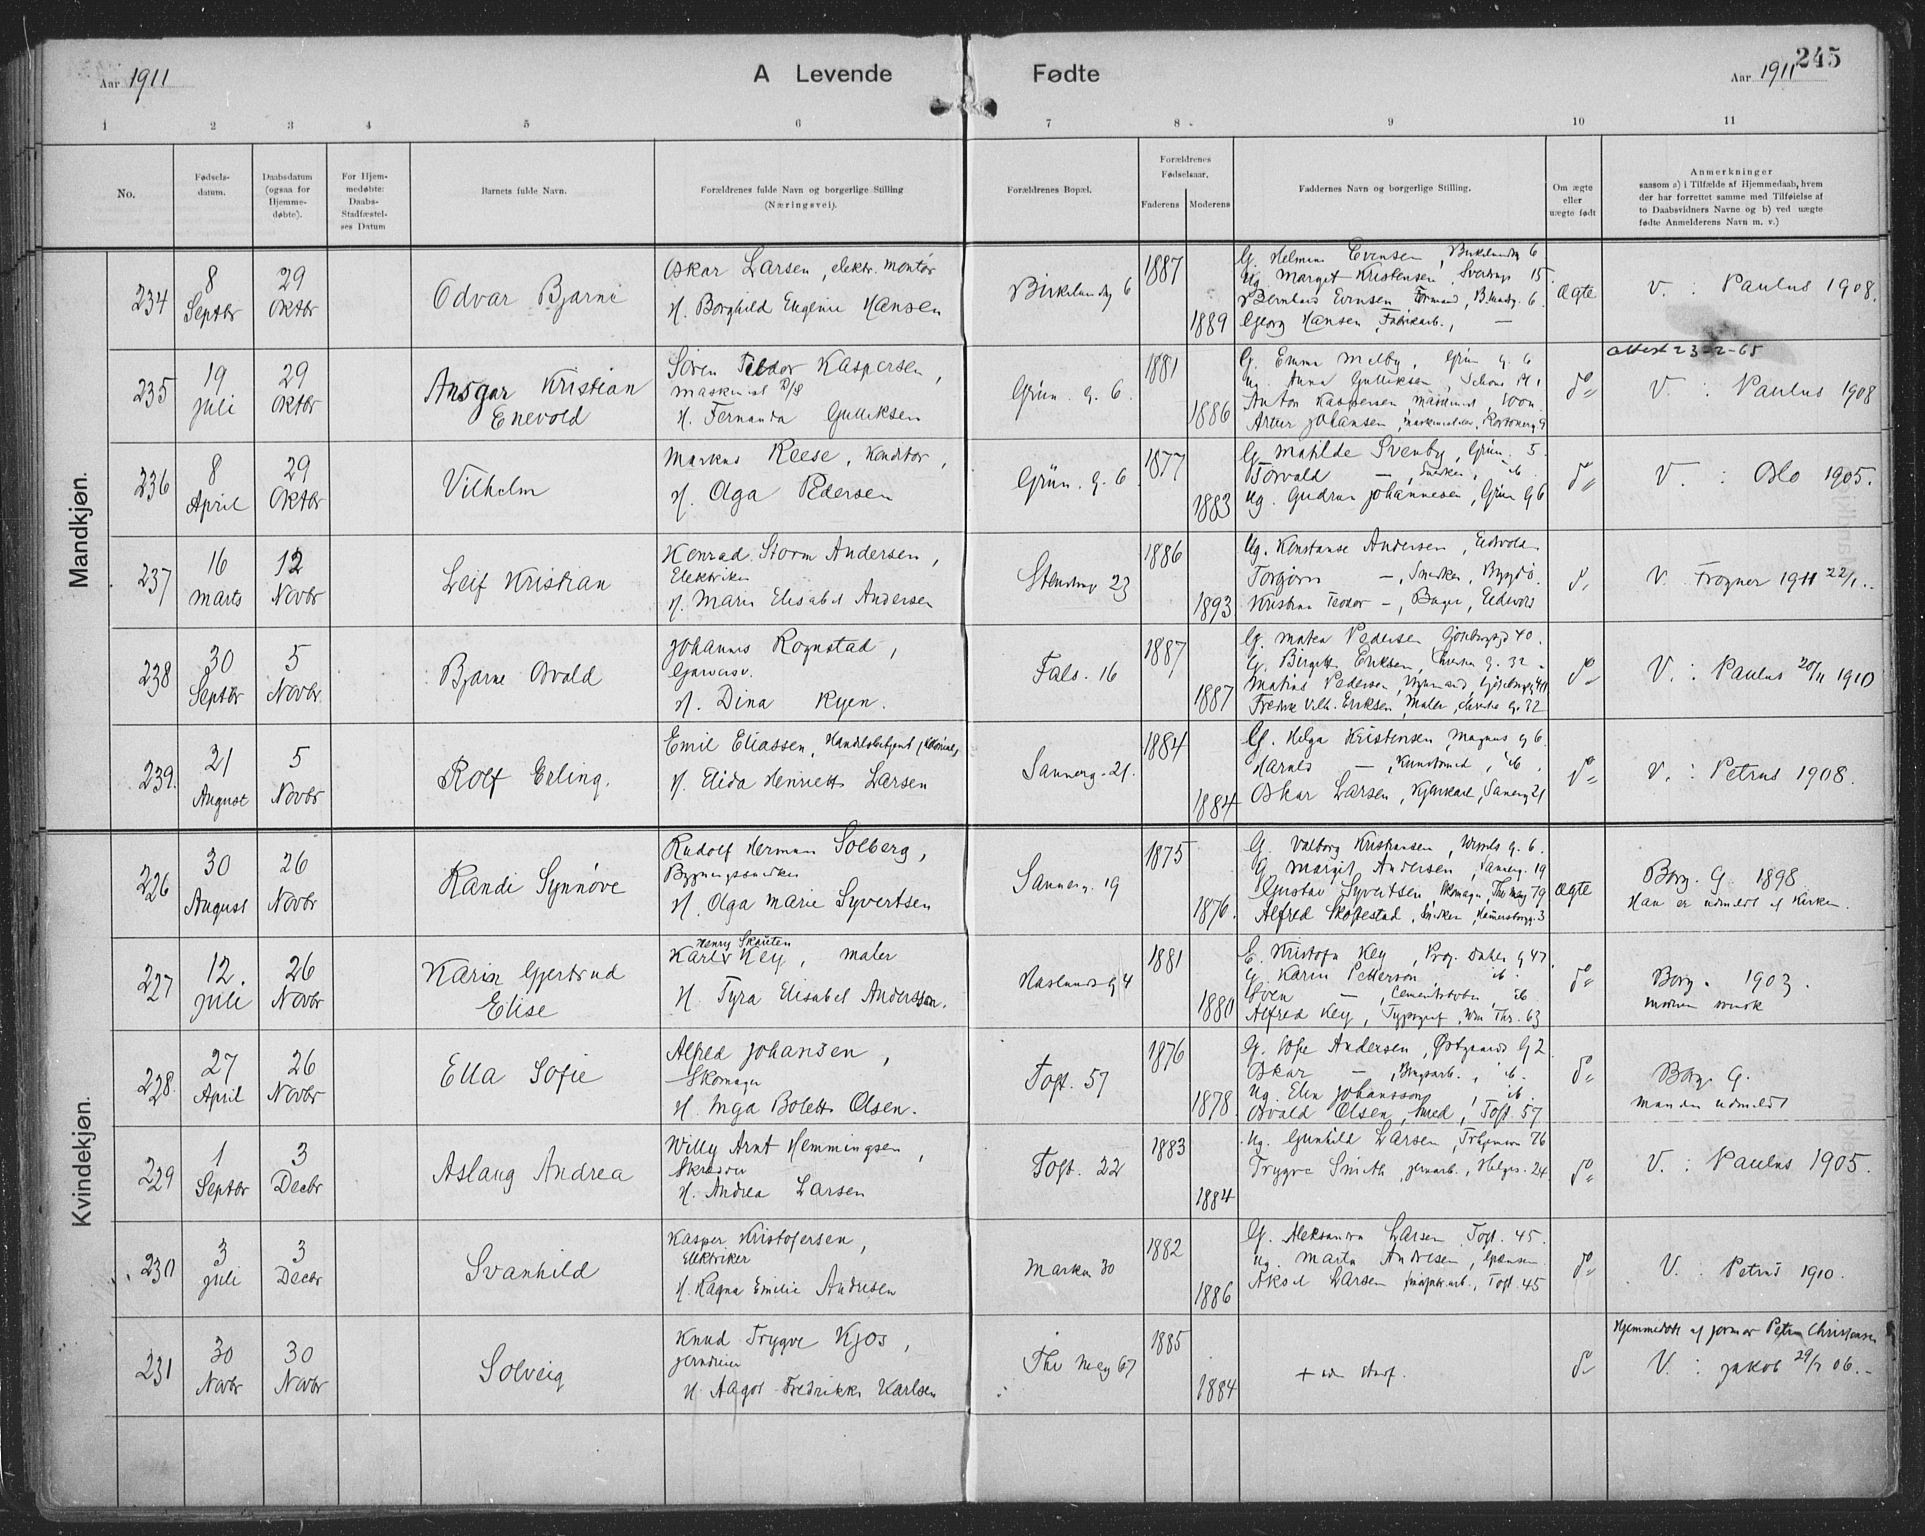 Aar 1911
A Levende Fødte
Aar 1911
245
1 2 3 4 5 6 7 8 9 10 11
No.
Fødsels-
datum.
Daabsdatum
(ogsaa for
Hjemme-
døbte).
For Hjem-
medøbte:
Daabs-
Stadfæstel-
ses Datum
Barnets fulde Navn.
Forældrenes fulde Navn og borgerlige Stilling
(Næringsvei).
Forældrenes Bopæl.
Forældrenes
Fødselsaar.
Faderens Moderens
Faddernes Navn og borgerlige Stilling.
Om ægte
eller
uægte født
Anmerkninger
saasom a) i Tilfælde af Hjemmedaab, hvem
der har forrettet samme med Tilføielse af
to Daabsvidners Navne og b) ved uægte
fødte Anmelderens Navn m. v.)
Mandkjøn.
234
8
Septbr
29
Oktbr
Odvar Bjarne
Oskar Larsen, elektr. montør
H. Borghild Eugenie Hansen
Birkelundg 6
1887
1889
G. Helmine Evensen, Birkelundg 6
Ug Margit Kristensen, 15
Bernhard Evensen Formand, 6.
Georg Hansen, Fabrikarb., —
Ægte
V. : Paulus 1908.
235
19
Juli
29
Oktbr
Ansgar Kristian
Enevold
Søren Teodor Kaspersen,
maskinist D/S
H. Fernanda Gulliksen
Grün. g. 6.
1881
1886
G. Emma Melby, Grün g. 6
Ug. Anna Gulliksen, Schous Pl. 1
Anton Kaspersen maskinist,
Artur Johansen,
do
Attest 23-2-65
V. : Paulus 1908
236
8
April
29
Oktbr
Vilhelm
Markus Reese, Konditor,
H. Olga Pedersen
Grün. g. 6
1877
1883
G. Matilde Svenby, Grün. 5.
Torvald —, Snedker, ib.
Ug. Gudrun Johannesen, Grün g 6
do
V. : Oslo 1905.
237
16
Marts
12
Novbr
Leif Kristian
Konrad Storm Andersen,
Elektriker
H. Marie Elisabet Andersen
Stenstrup 23
1886
1893
Ug. Konstanse Andersen, Eidsvold
Torbjørn —, Snedker, Bygdø
Kristian Teodor —, Bager, Eidsvold
do
V. Frogner 1911 22/1.
238
30
Septbr
5
Novbr
Bjarne Osvald
Johannes Rognstad,
Garversv.
H. Dina Ryen.
Fals. 16
1887
1887
G. Matea Pedersen 40.
G. Birgitte Eriksen, g. 32
Matias Pedersen,
Fredrik Vilh. Eriksen, Maler, g. 32
do
V. : Paulus 20/11 1910
239.
21
August
5
Novbr
Rolf Erling.
Emil Eliassen, Handelsbetjent (Kolonial)
H. Elida Henriette Larsen
Sannerg. 21.
1884
1884
G. Helga Kristensen, Magnus g 6.
Harald —, Kunstsmed, ib.
Oskar Larsen, Kjørekarl, Sannerg 21
do
V. : Petrus 1908.
Kvindekjøn.
226
30
August
26
Novbr
Randi Synnøve
Rudolf Herman Solberg,
Bygningssnedker
H. Olga Marie Syvertsen
Sannerg. 19
1875
1876.
G. Valborg Kristiansen, g. 6.
G. Margit Andersen, Sannerg. 19
Gustav Syvertsen, Skomager, Thv Mey 79
Alfred Skofestad, Snedker, Hamersborgg. 3
Ægte
Borg. G 1898
Han er udmeldt af Kirken.
227
12.
Juli
26
Novbr
Karin Gjertrud
Elise
Henry Skouten
Karl Key, maler
H. Tyra Elisabet Andersson.
Haslunds g 4
1881
1880
E. Kristofa Key, Prof. Dahls g 47.
G Karin Petterson ib.
Sven —, Cementstøber, ib
Alfred Key, Typograf, Thr. 63
do
Borg. 1903.
Moderen svensk
228.
27
April
26
Novbr
Ella Sofie
Alfred Johansen,
Skomager
H. Inga Bolette Olsen.
Toft. 57
1876
1878.
G. Sofie Andersen, Østgaards g 2
Oskar —, Brygarb., ib.
Ug. Elin Johansson, ib.
Osvald Olsen, Smed, Toft. 57
do
Borg. G.
Manden udmeldt
229
1
Septbr
3
Decbr
Aslaug Andrea
Willy Arnt Hemmingsen,
Skrædder
H. Andrea Larsen
Toft. 22
1883
1884
Ug. Gunhild Larsen, 76
Trygve Smith, jernarb., Helges. 24
do
V. : Paulus 1905.
230
3
Juli
3
Decbr
Svanhild
Kasper Kristofersen,
Elektriker
H. Ragna Emilie Andresen
Markv 30
1882
1886
G. Aleksandra Larsen Toft. 45.
Ug. Marta Andresen,
Aksel Larsen, Toft. 45
do
V. Petrus 1910.
231
30
Novbr
30
Novbr
Solveig
Knud Trygve Kjos,
jerndreier
H. Aagot Fredrikke Karlsen
Thv Mey 67
1885
1884
do
Hjemmedøbt af jormor Petra Christensen
V. : Jakob 29/7 06.